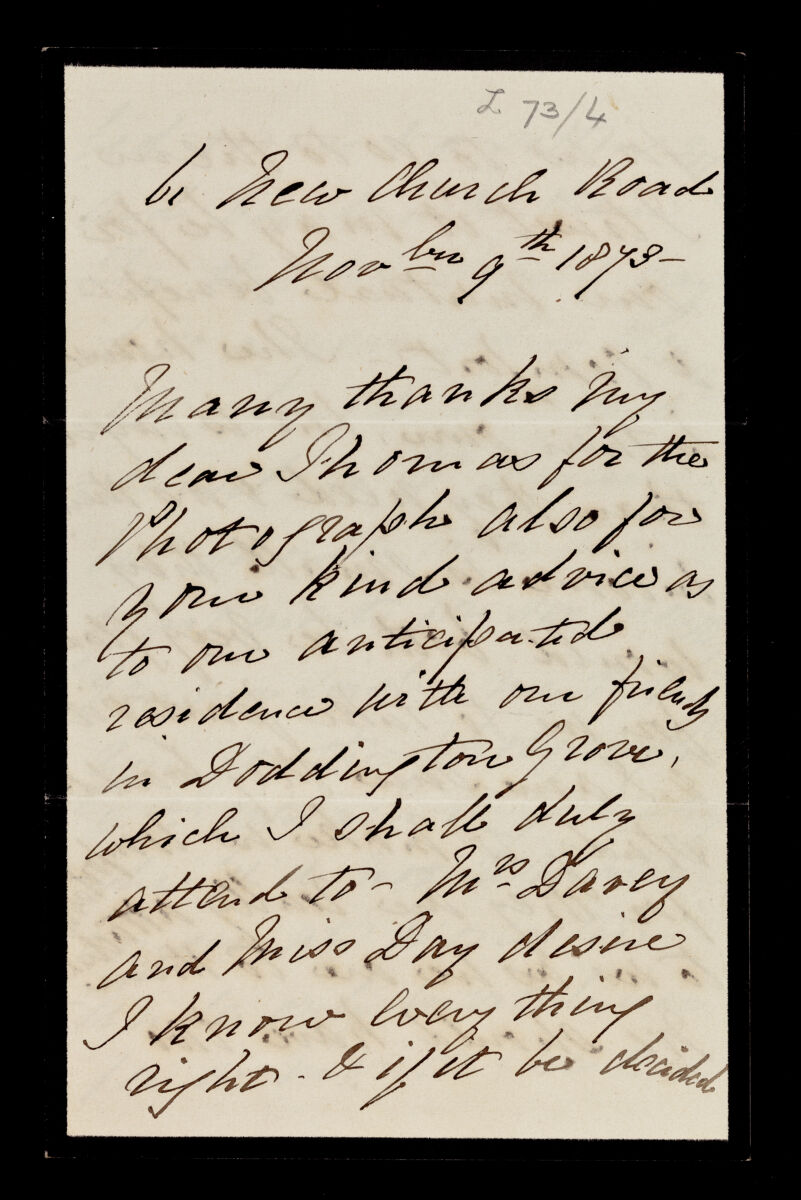 L 73/4
61 New Church Road
Novber 9th 1873-
Many thanks my
dear Thomas for the
Photograph also for
your kind advice as
to our anticipated
residence with our friends
in Doddington Grove,
which I shall duly
attend to - Mrs Davey
and Miss Day desire
I know every thing
right - & if it be decided